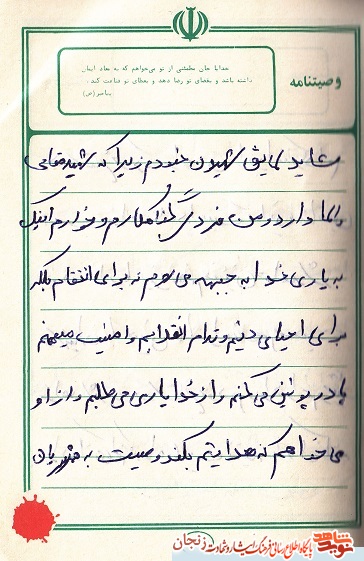 وصیتنامه
خدایا جان مطمئنی از تو می‌خواهم که به معاد ایمان
داشته باشد و بقضای تو رضا دهد و بعطای تو قناعت کند.
پیامبر (ص)
شاید لایق شهیدن نبودم زیرا که شهید مقامی
والا دارد و من فردی گناهکارم و خوارم اینک
به یاری خدا به جبهه می روم نه برای انتقام بلکه
برای احیای دینم و تداوم انقلابم و امنیت میهنم
پا در پوتین می کنم و از خدا یاری می طلبم و از او
می خواهم که هدایتم بکند وصیت به
پایگاه اطلاع رسانی فرهنگ ایثار و شهادت زنجان
نوید شاهد